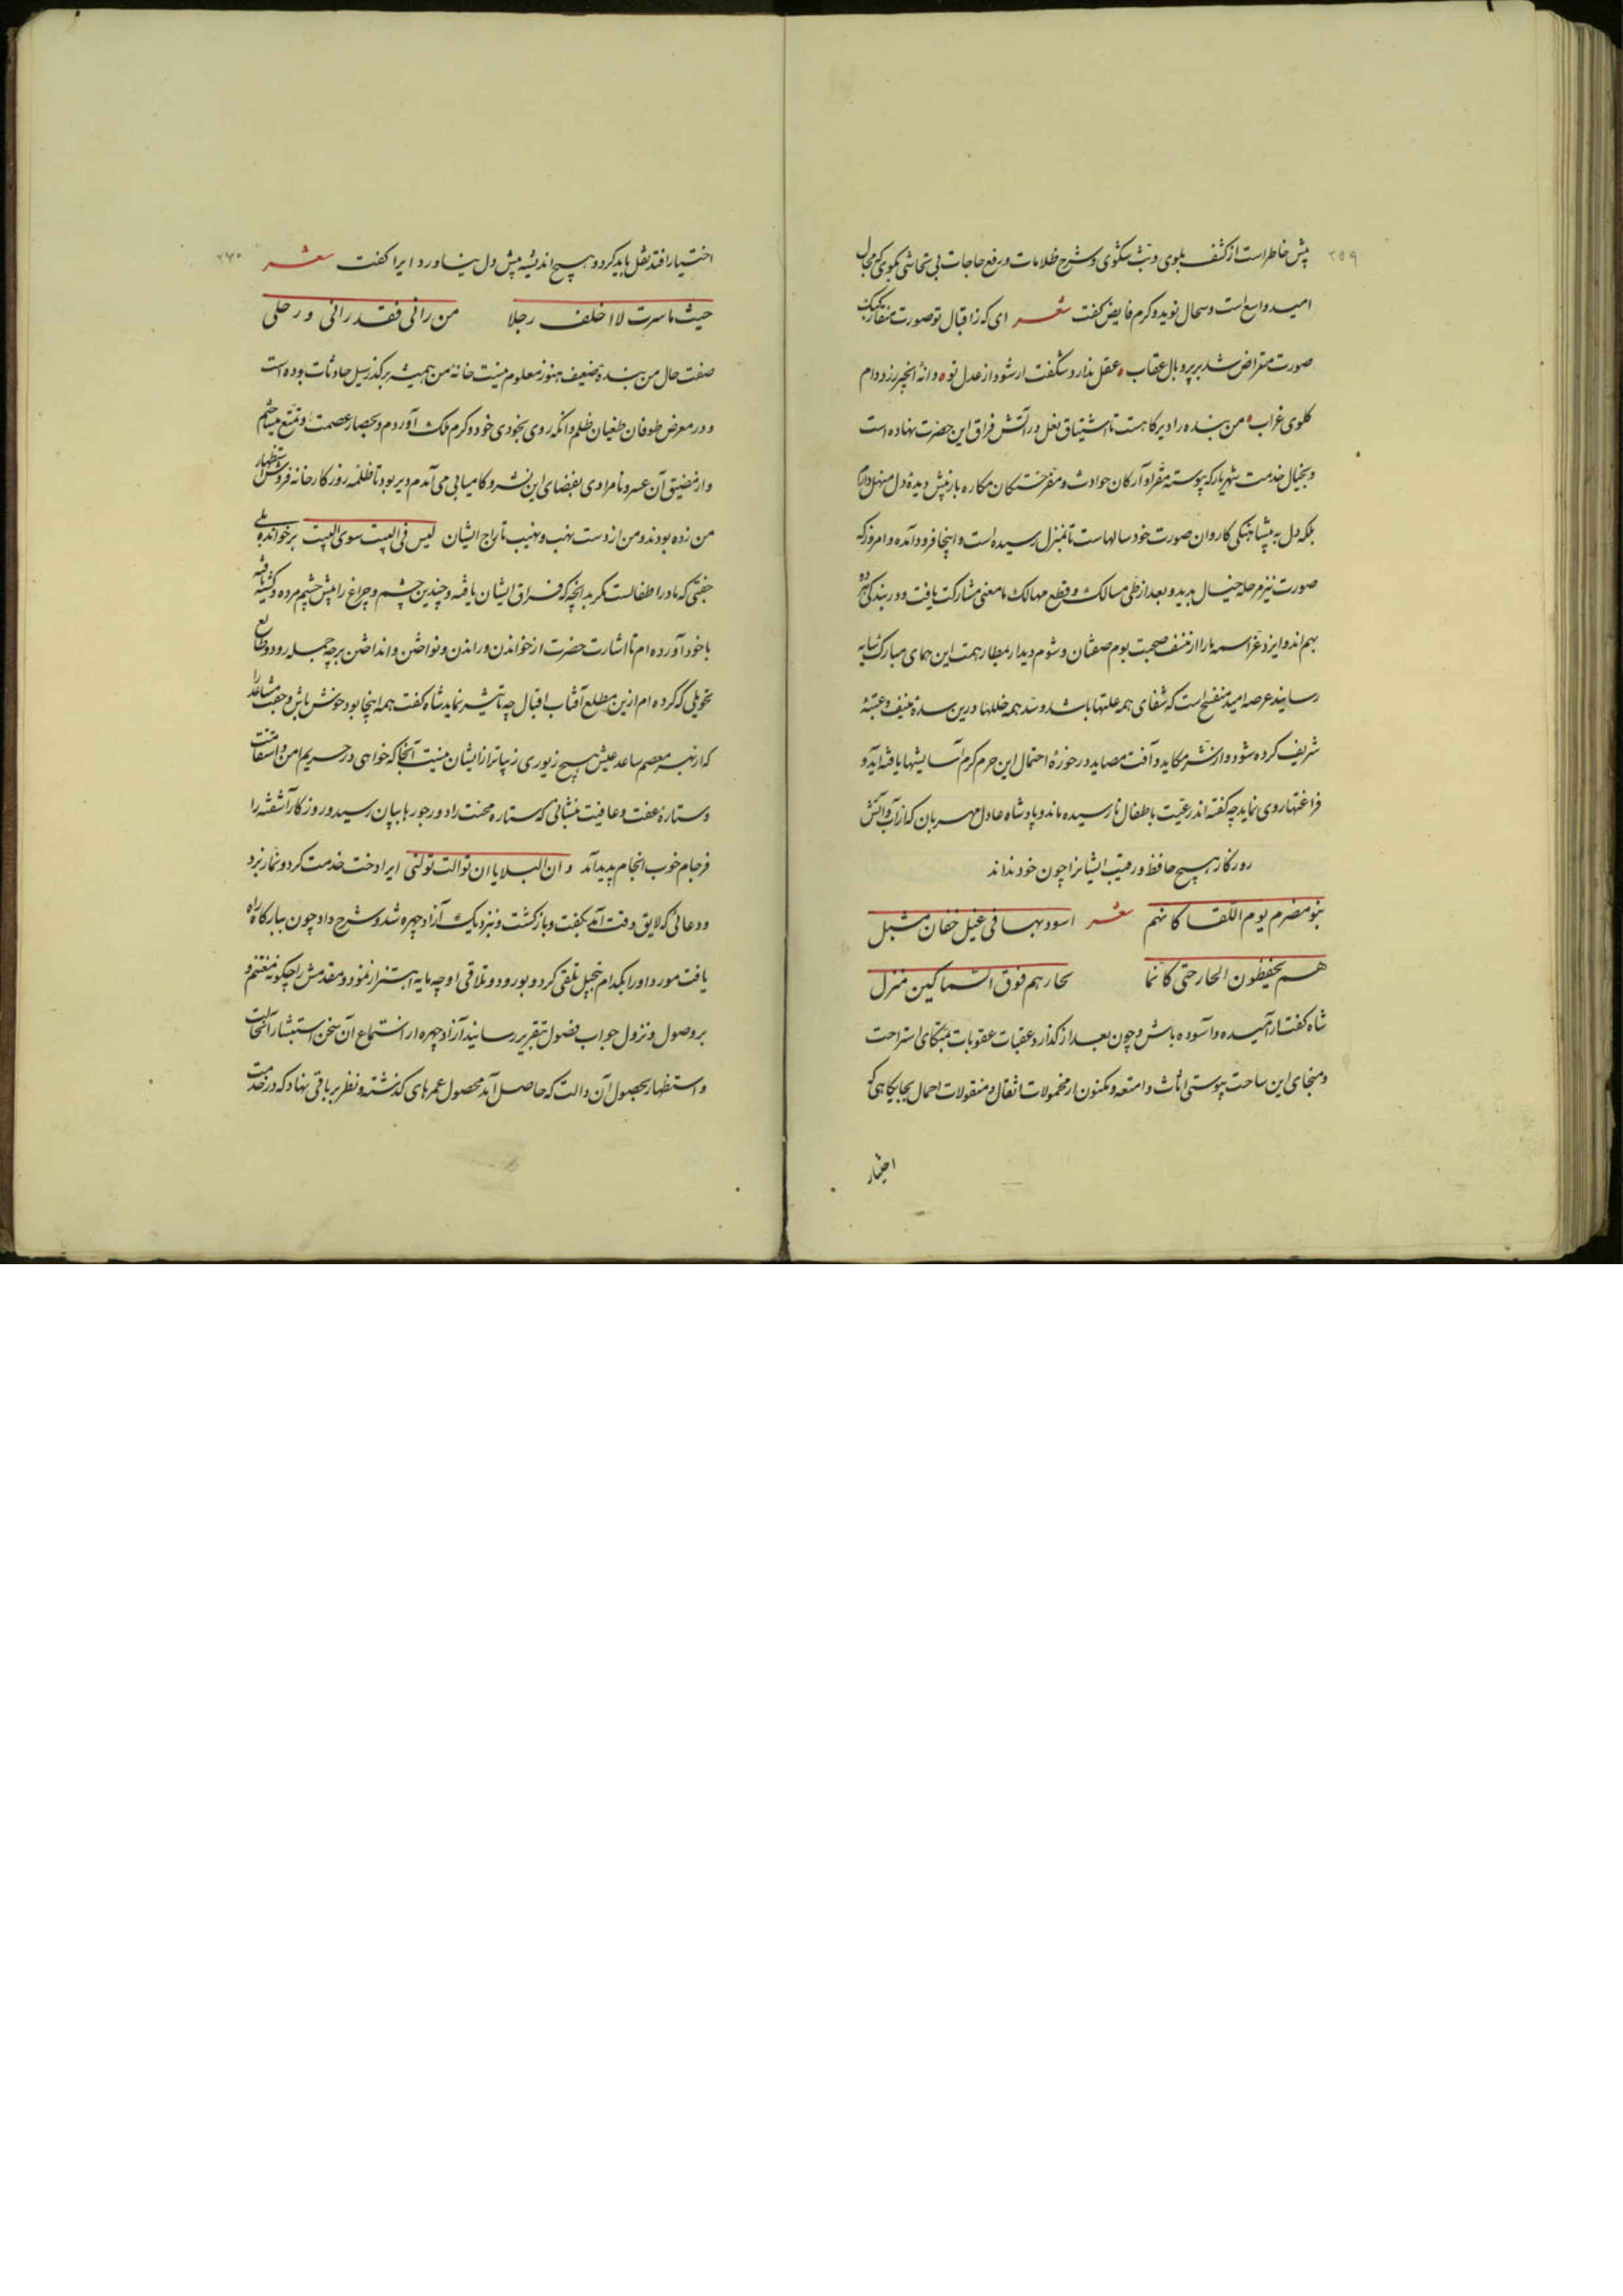 ۲۵۹
پیش خاطر است از کشف بلوی و بث شکوی و شرح ظلامات و رفع حاجات بی تحاشی بگوی که مجال
امید واسع است و سجال نوید و کرم فایض گفت شعر ای که ز اقبال تو صورت منقار کبک
صورت مقراض شد بر پر و بال عقاب عقل ندارد شگفت ار شود از عدل تو دانه انجیر رز دام
گلوی غراب من بنده را دیرگاهست تا اشتیاق نعل در آتش فراق این حضرت نهاده است
و بخیال خدمت شهریار که پیوسته مقر آوارگان حوادث و مفر خستگان مکاره باد پیش دیده دل منهل دارم
بلکه دل به پیشاهنگی کاروان صورت خود سالهاست تا بمنزل رسیده است و اینجا فرود آمده و امروز که
صورت نیز مرحله خیال برید و بعد از طی مسالک و قطع مهالک با معنی مشارکت یافت و در بندگی هر دو
بهم اند و ایزد عز اسمه ما را از عنف صحبت بوم صفتان و شوم دیدار بمطار همت این همای مبارک سایه
رسانید عرصه امید منفسح است که شفای همه علتها باشد و سد همه خللها درین سده منیف و عتبه
شریف کرده شود و از شر مکاید و آفت مصاید در حوزه احتمال این حرم کرم آسایشها یافته آید و
فراغتها روی نماید چه گفته اند رعیت باطفال نارسیده ماند و پادشاه عادل مهربان که از آب و آتش
روزگار هیچ حافظ و رقیب ایشانرا چون خود نداند
بنو مضرم یوم اللقا کانهم شعر اسود بها فی غیل خفان مشبل
هم یحفظون الجار حتی کانما لجارهم فوق السماکین منزل
شاه گفت آرمیده و آسوده باش و چون بعد از گذار عقبات عقوبات بمتکای استراحت
و منجای این ساحت پیوستی اثاث و امتعه و مکنون از محمولات اثقال و منقولات احمال بجایگاهی که
اختیار
۲۶۰
اختیار افتد نقل باید کرد و هیچ اندیشه پیش دل نیاورد ایرا گفت شعر
حیث ما سرت لا اخلف رجلا من رانی فقد رانی و رحلی
صفت حال من بنده ضعیف هنوز معلوم نیست خانه من همیشه بر گذر سیل حادثات بوده است
و در معرض طوفان طغیان ظلم و آنکه روی بجودی خود و کرم ملک آوردم و بحصار عصمت و تمنع میساختم
و از مضیق آن عسر و نامرادی بفضای این یسر و کامیابی می آمدم دیر بود تا ظلمه روزگار خانه فروش استظهار
من زده بودند و من از دست نهب و نهیب تاراج ایشان لیس فی البیت سوی البیت برخوانده بلی
جفتی که مادر اطفالست مگر بدانچه که فراق ایشان یافته و چندین چشم و چراغ را پیش چشم مرده و کشته یافته
با خود آورده ام تا اشارت حضرت از خواندن و راندن و نواختن و انداختن بر چه جمله رود و طالع
تحویلی که کرده ام ازین مطلع آفتاب اقبال چه تاثیر نماید شاه گفت همه اینجا بود خوش باش و جفت مساعد را
که از بهر معصم ساعد عیش هیچ زیوری زیباتر از ایشان نیست آنجا که خواهی در حریم امن و استقامت
و ستاره عفت و عافیت بنشانی که ستاره محنت را دور جور بپایان رسید و روزگار آشفته را
فرجام خوب انجام پدید آمد و ان البلایا ان توالت تولت ایرا دخت خدمت کرد و نماز برد
و دعائی که لایق وقت آمد بگفت و بازگشت و نزدیک آزاد چهره شد و شرح داد چون ببارگاه راه
یافت مورد او را بکدام تبجیل تلقی کرد و بورود و تلاقی او چه مایه اهتزاز نمود و مقدمش را چگونه مغتنم و
بر وصول و نزول جواب فصول بتقریر رسانید آزاد چهره از استماع آن سخن استبشار
و استظهار بحصول آن دالت که حاصل آمد محصول عمرهای گذشته و نظر بر باقی نهاد که در خدمت